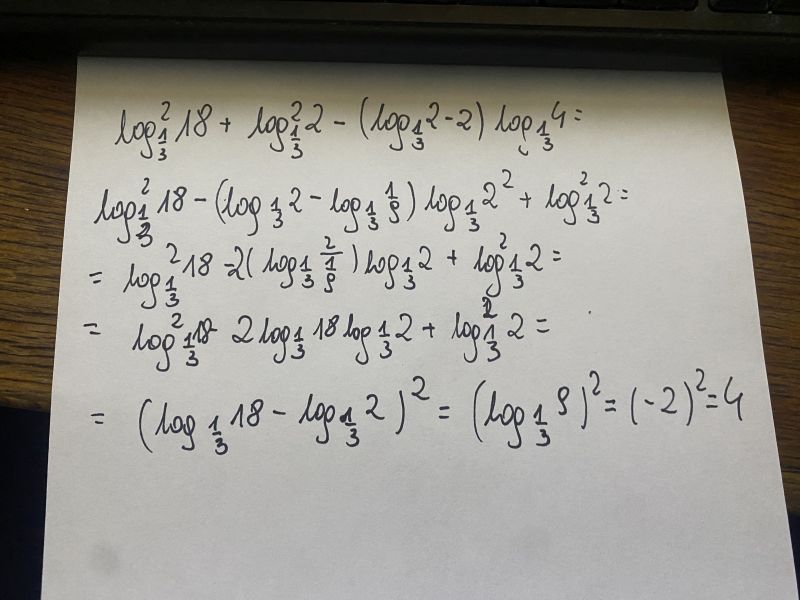 log²_{1/3} 18 + log²_{1/3} 2 - (log_{1/3} 2 - 2) log_{1/3} 4 =
log²_{1/3} 18 - (log_{1/3} 2 - log_{1/3} 1/9) log_{1/3} 2² + log²_{1/3} 2 =
= log²_{1/3} 18 - 2(log_{1/3} 2/(1/9)) log_{1/3} 2 + log²_{1/3} 2 =
= log²_{1/3} 18 - 2 log_{1/3} 18 log_{1/3} 2 + log²_{1/3} 2 =
= (log_{1/3} 18 - log_{1/3} 2)² = (log_{1/3} 9)² = (-2)² = 4